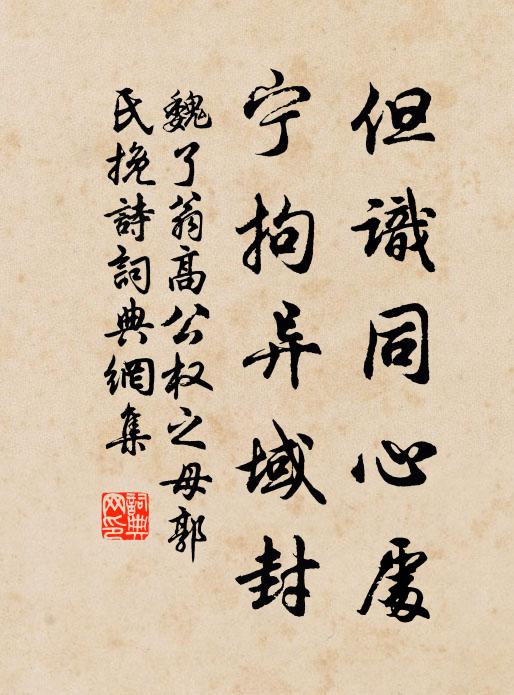 但識同心處
宁拘异域封
魏了翁高公权之母郭
氏挽詩詞典網集
詞典網印